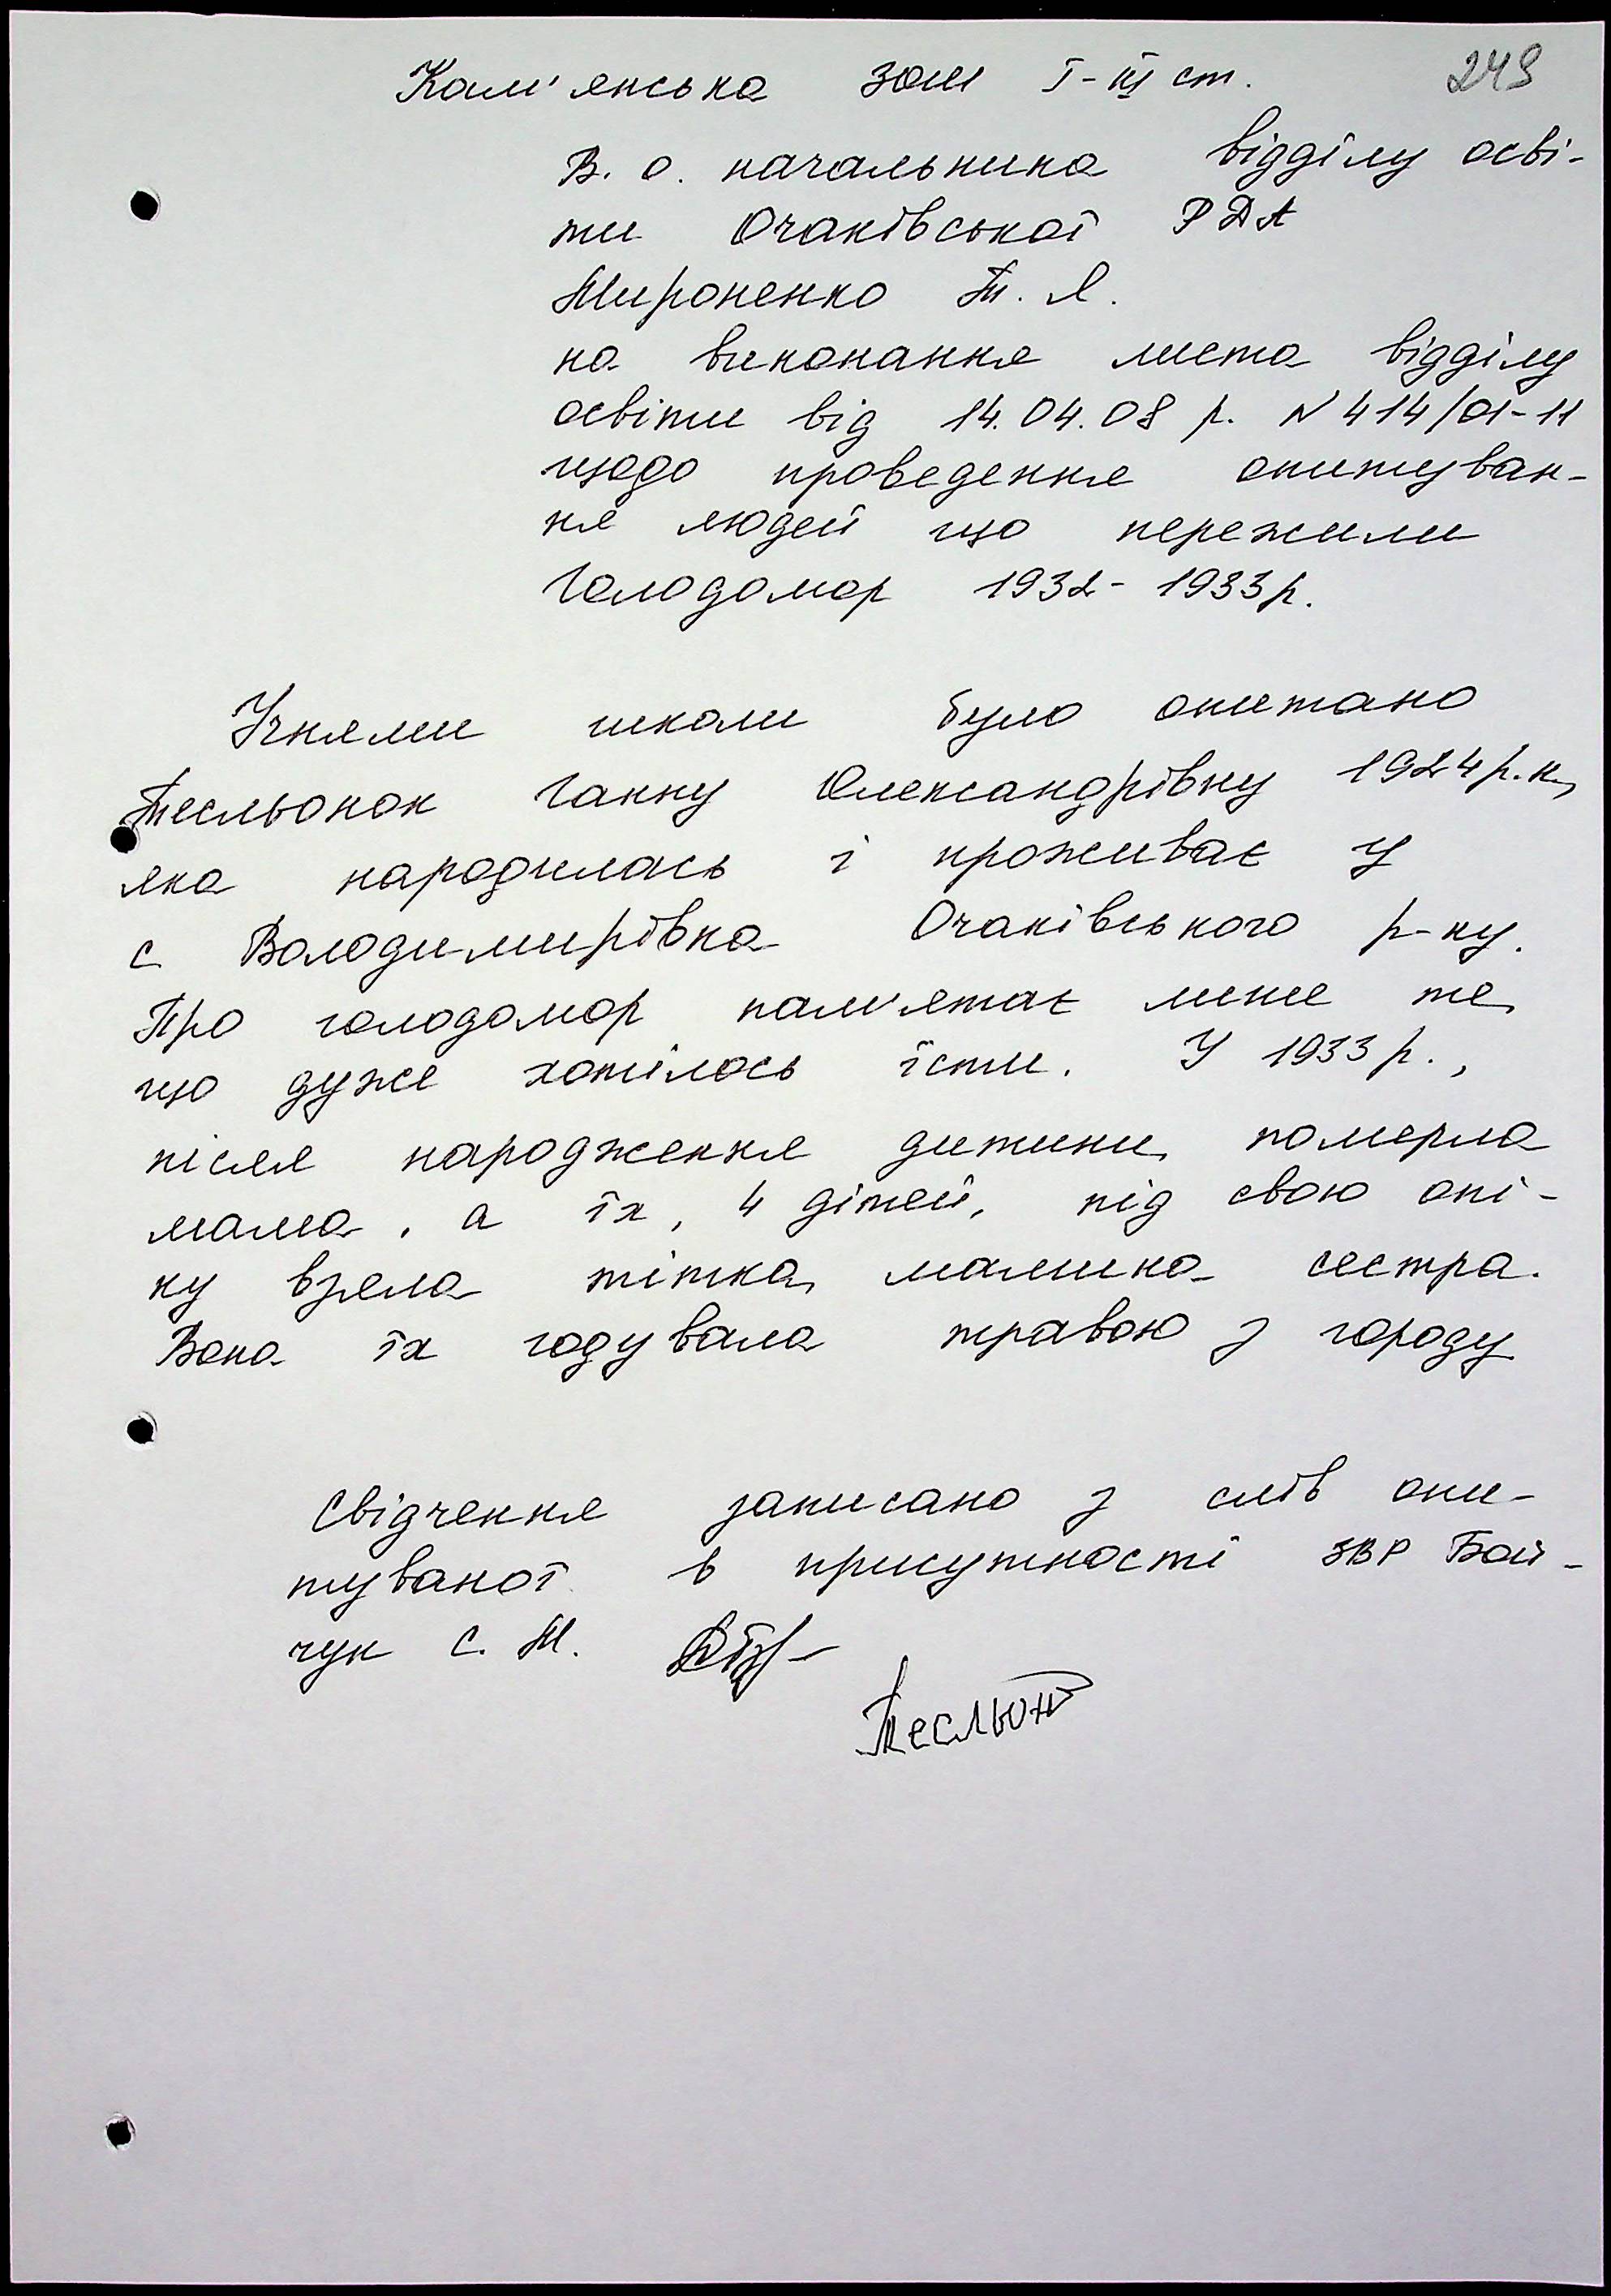 Кам'янська зош І-ІІІ ст. 249
В. о. начальника відділу осві-
ти Очаківської РДА
Мироненко Т. Л.
на виконання листа відділу
освіти від 14.04.08 р. N 414/01-11
щодо проведення опитуван-
ня людей що пережили
Голодомор 1932-1933р.
Учнями школи було опитано
Тесльонок Ганну Олександрівну 1924р.н,
яка народилась і проживає у
с Володимирівка Очаківського р-ну.
Про голодомор пам'ятає лише те,
що дуже хотілось їсти. У 1933 р.,
після народження дитини, померла
мама, а їх, 4 дітей, під свою опі-
ку взяла тітка, мамина сестра.
Вона їх годувала травою з городу
Свідчення записано з слів опи-
туваної в присутності ЗВР Бой-
чук С. М.
Тесльон